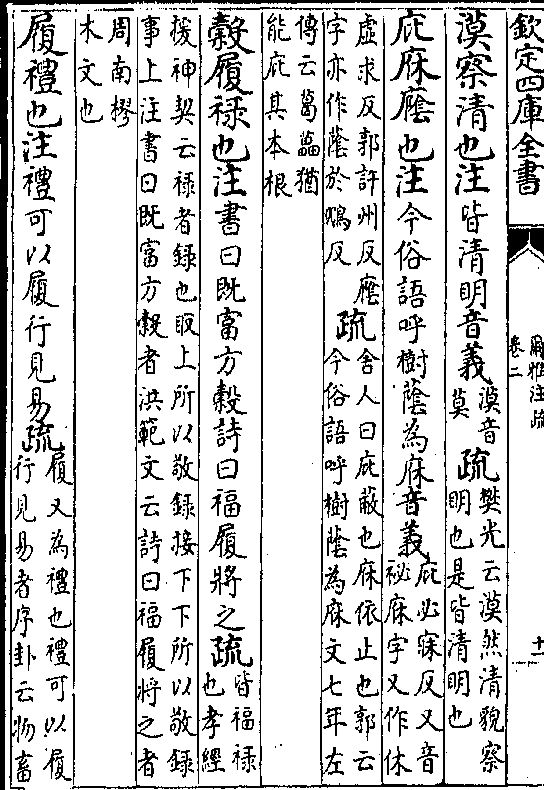 欽定四庫全書
爾雅注疏
卷二
十一
漠察清也注皆清明音義漠音
莫
疏樊光云漠然清貌察
明也是皆清明也
庇庥廕也注今俗語呼樹蔭為庥音義庇必寐反又音
祕庥字又作休
虛求反郭許州反廕
字亦作蔭於鴆反
疏舍人曰庇蔽也庥依止也郭云
今俗語呼樹蔭為庥文七年左
傳云葛藟猶
能庇其本根
穀履祿也注書曰既富方穀詩曰福履將之疏皆福祿
也孝經
援神契云祿者錄也取上所以敬錄接下下所以敬錄
事上注書曰既富方穀者洪範文云詩曰福履將之者
周南樛
木文也
履禮也注禮可以履行見易疏履又為禮也禮可以履
行見易者序卦云物畜